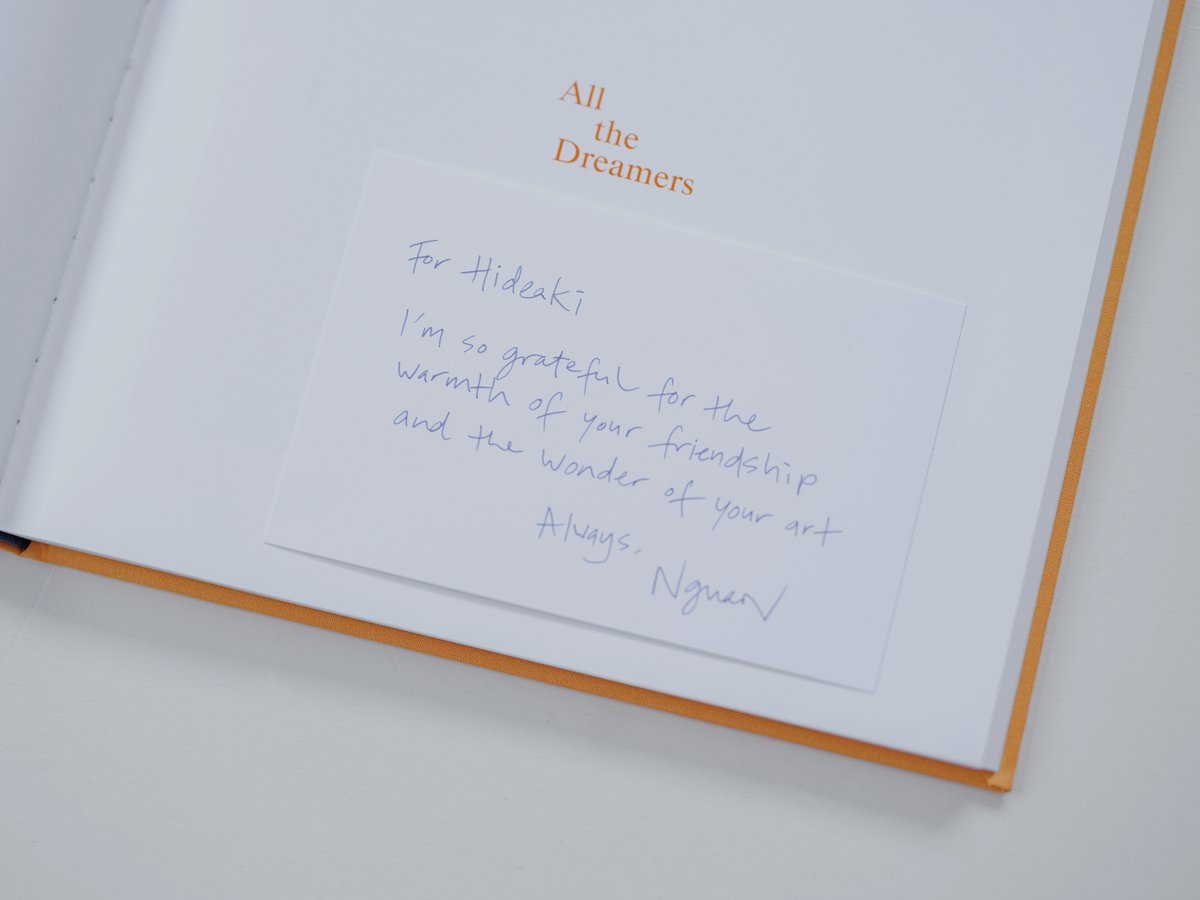 All
the
Dreamers
For Hideaki
I'm so grateful for the
warmth of your friendship
and the wonder of your art
Always,
Nguan